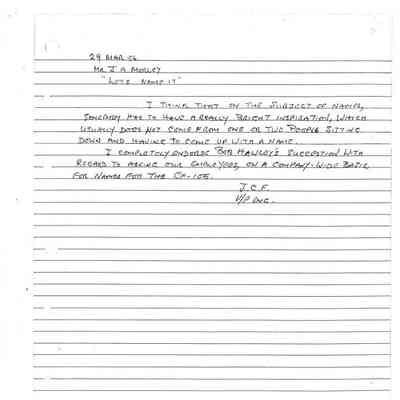 29 MAR 56
MR J A MORLEY
"LET'S NAME IT"
I THINK THAT ON THE SUBJECT OF NAMES,
SOMEBODY HAS TO HAVE A REALLY BRIGHT INSPIRATION, WHICH
USUALLY DOES NOT COME FROM ONE OR TWO PEOPLE SITTING
DOWN AND HAVING TO COME UP WITH A NAME.
I COMPLETELY ENDORSE BOB HAWLEY'S SUGGESTION WITH
REGARD TO ASKING OUR EMPLOYEES, ON A COMPANY-WIDE BASIS,
FOR NAMES FOR THE CF-105.
J.C.F.
V/P ENG.